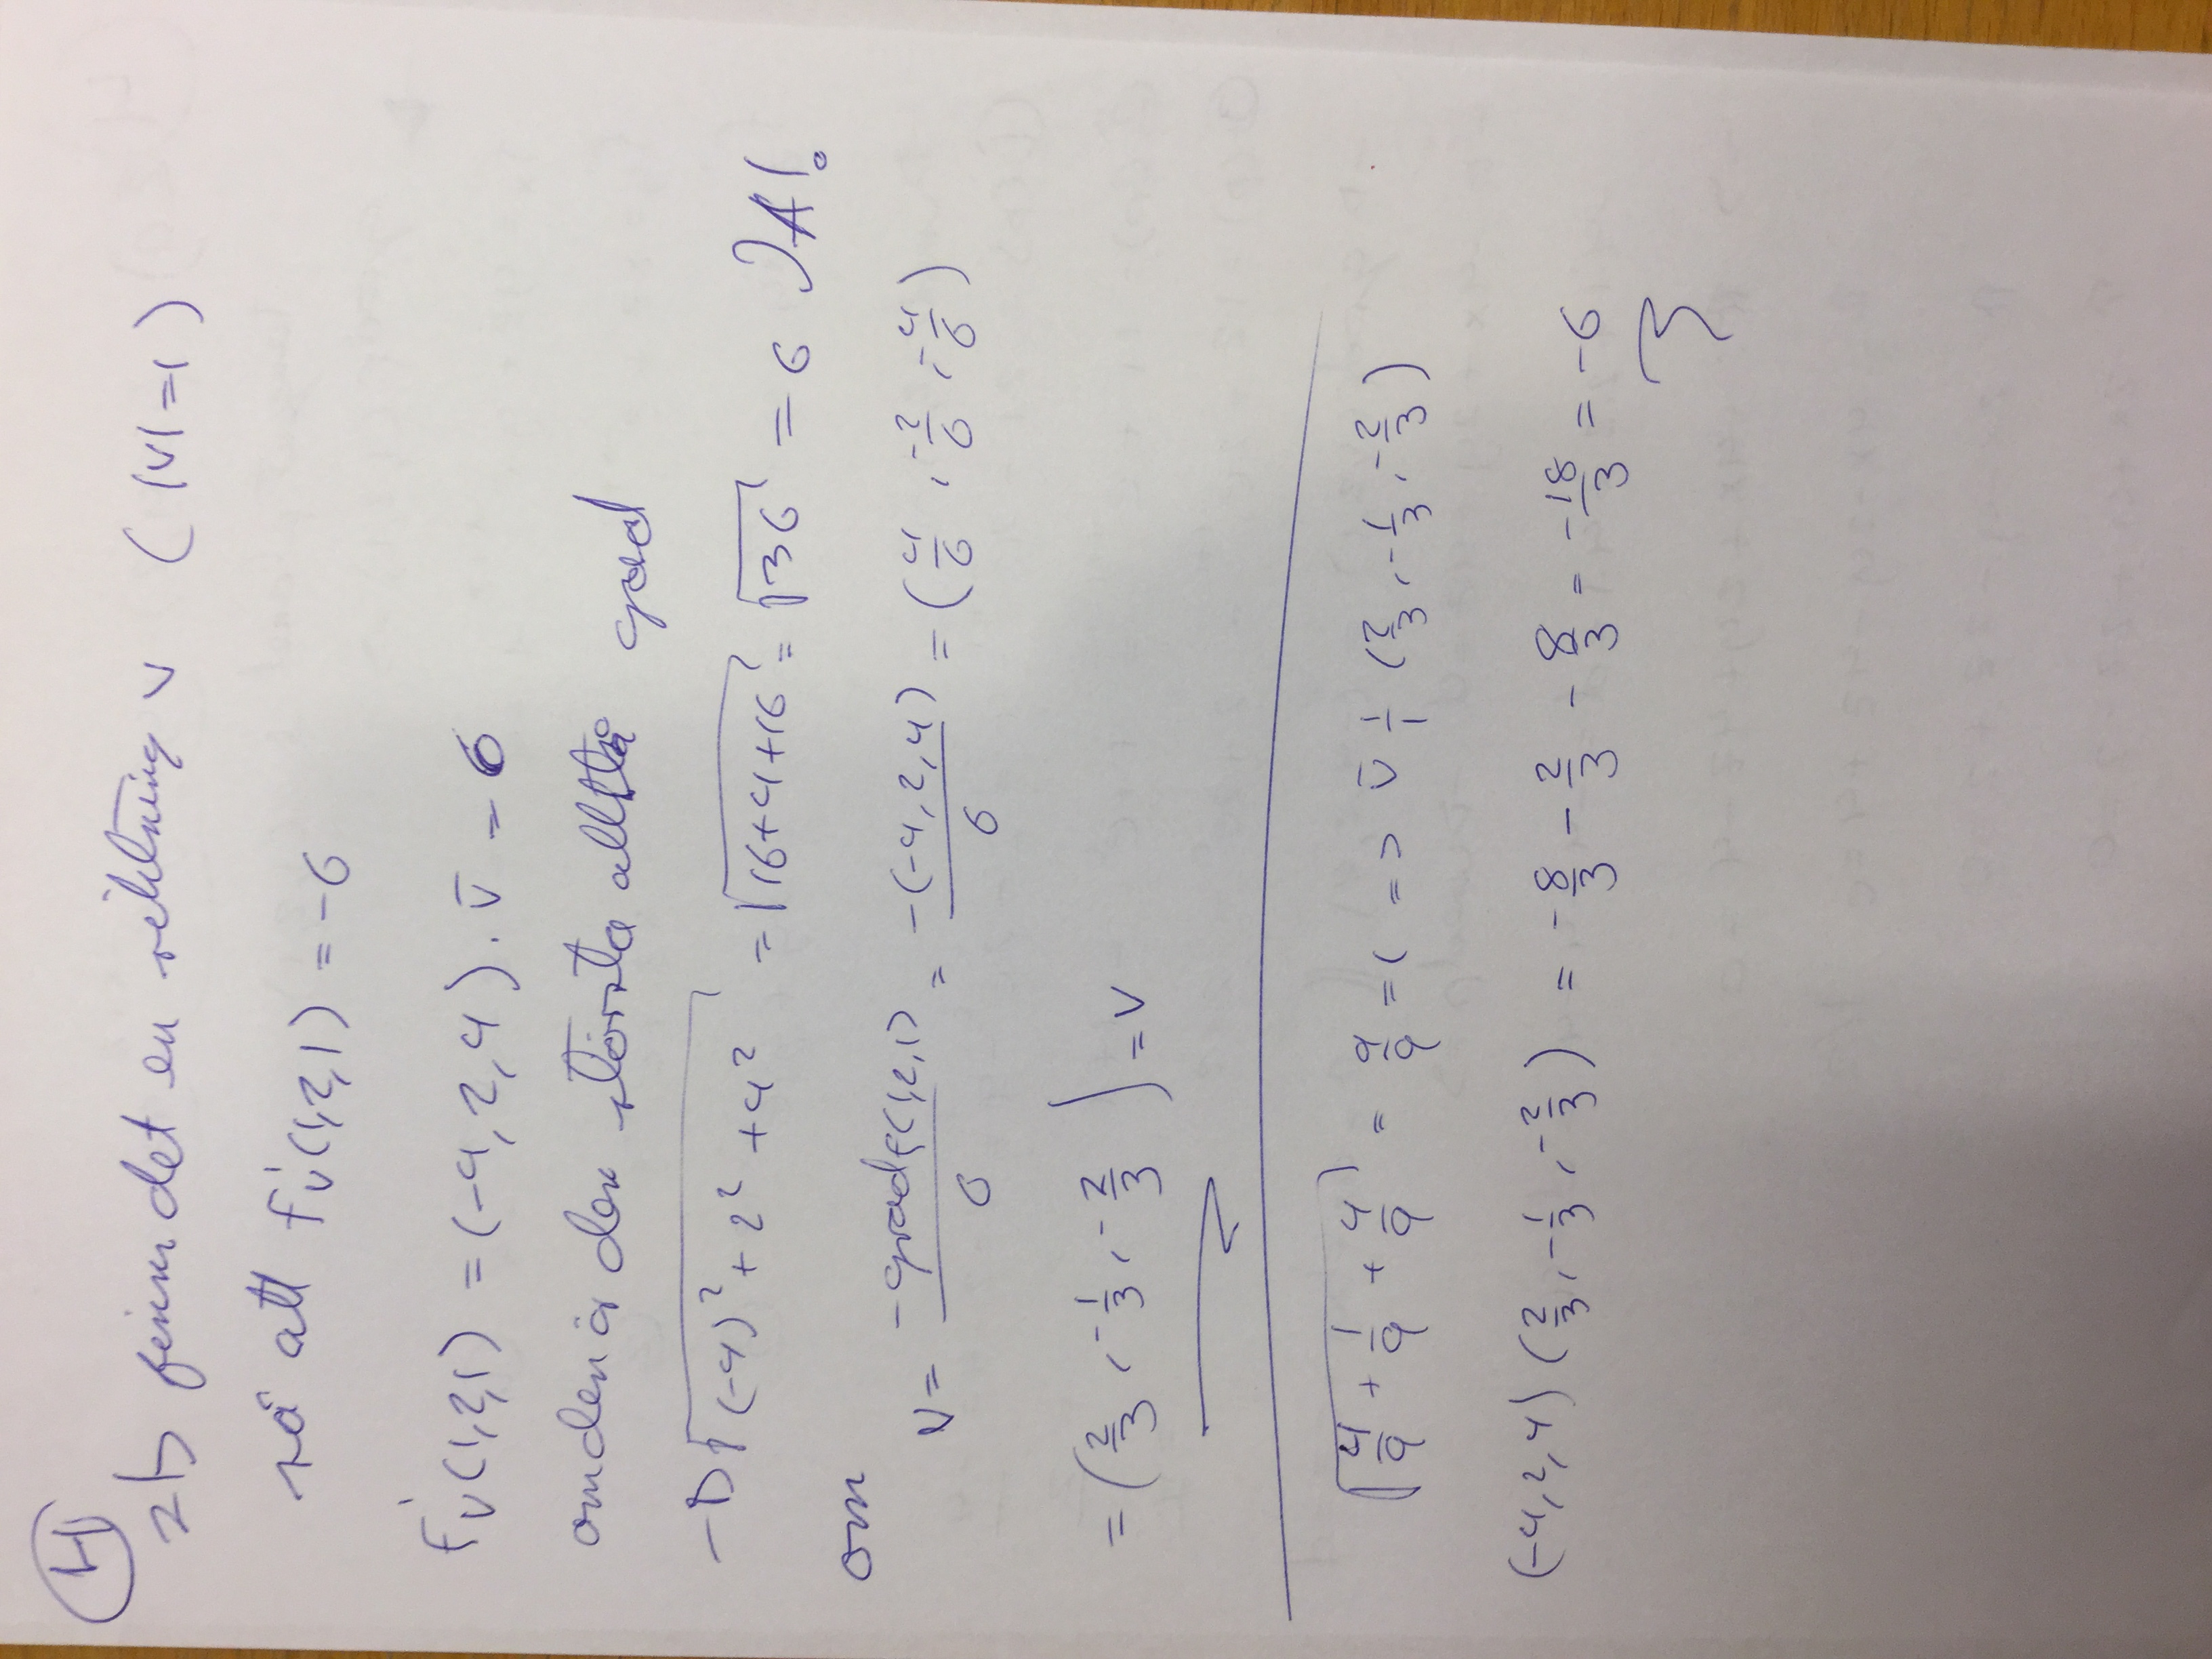 4
2b finns det en riktning v (|v|=1)
så att f'v(1,2,1) = -6
f'v(1,2,1) = (-4,2,4) . v̄ = 6
om den är den största alltså grad
→ √((-4)² + 2² + 4²) = √(16+4+16) = √36 = 6 JA!
om
v = -grad f(1,2,1) / 6 = -(-4,2,4) / 6 = (4/6, -2/6, -4/6)
= (2/3, -1/3, -2/3) = v
√(4/9 + 1/9 + 4/9) = 9/9 = 1 => v̄ 1/1 (2/3, -1/3, -2/3)
(-4,2,4) (2/3, -1/3, -2/3) = -8/3 - 2/3 - 8/3 = -18/3 = -6